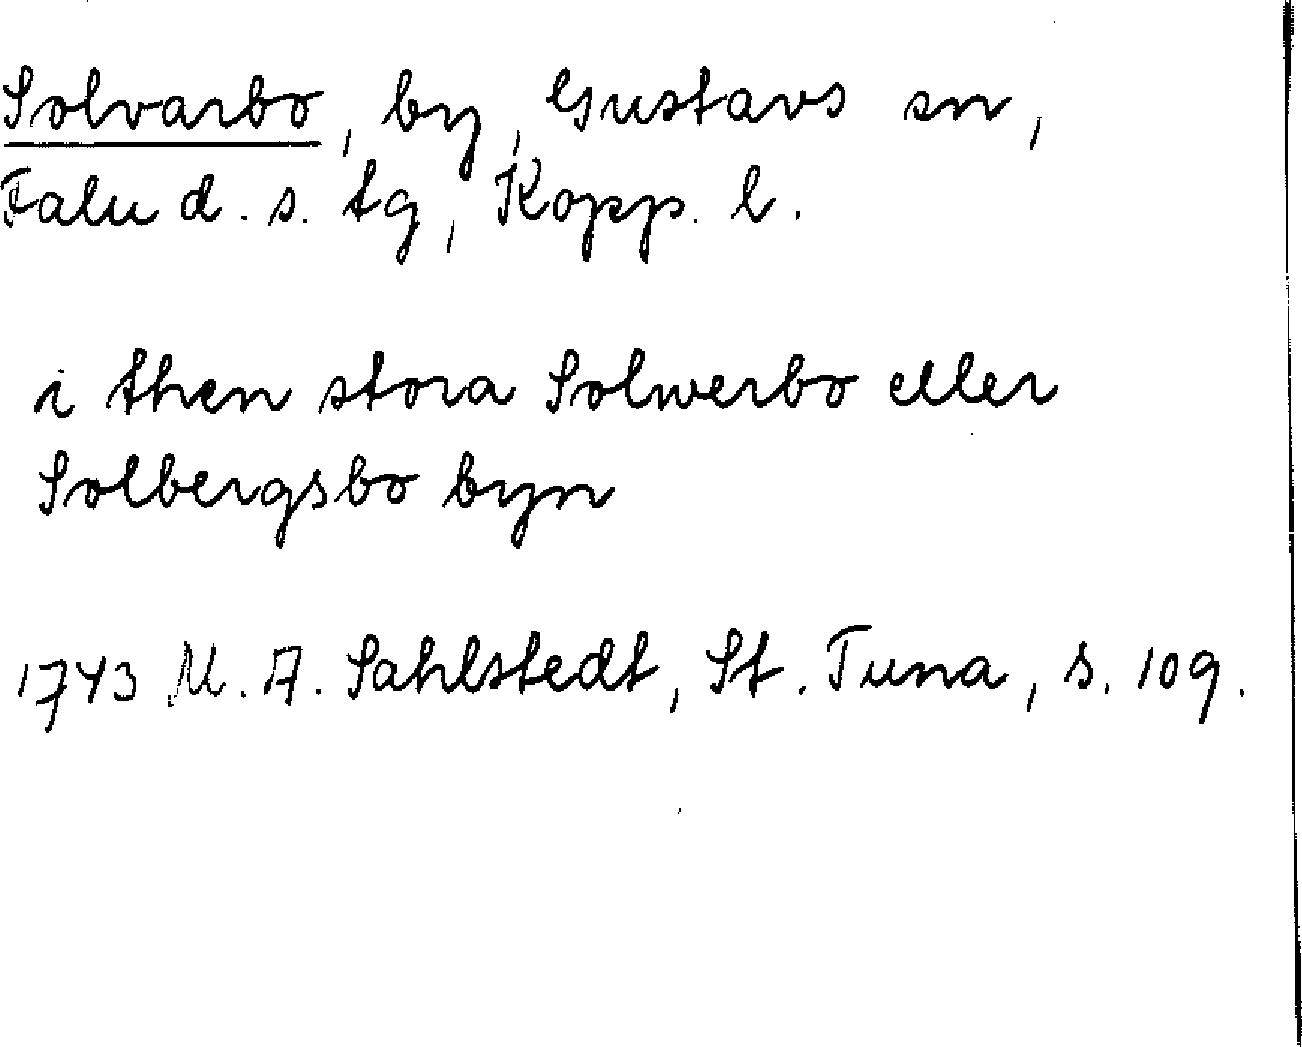 Solvarbo, by, Gustavs sn,
Falu d. s. tg, Kopp. l.
i then stora Solwerbo eller
Solbergsbo byn
1743 M. A. Sahlstedt, St. Tuna, s. 109.